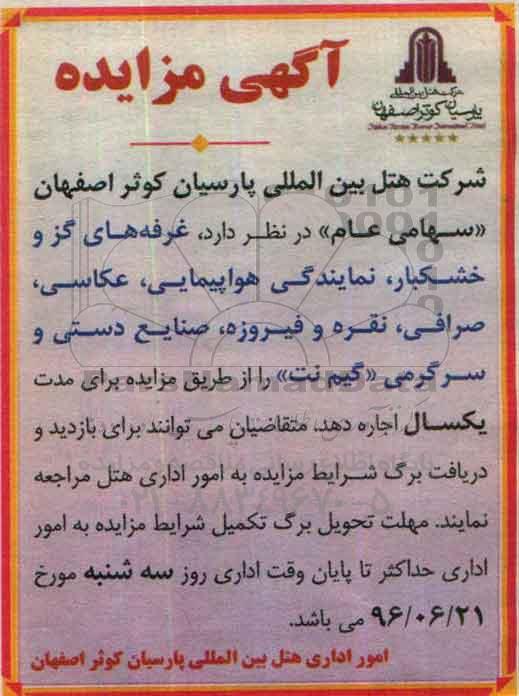 آگهی مزایده
شرکت هتل بین المللی
پارسیان کوثر اصفهان
شرکت هتل بین المللی پارسیان کوثر اصفهان
«سهامی عام» در نظر دارد، غرفه‌های گز و
خشکبار، نمایندگی هواپیمایی، عکاسی،
صرافی، نقره و فیروزه، صنایع دستی و
سرگرمی «گیم نت» را از طریق مزایده برای مدت
یکسال اجاره دهد. متقاضیان می توانند برای بازدید و
دریافت برگ شرایط مزایده به امور اداری هتل مراجعه
نمایند. مهلت تحویل برگ تکمیل شرایط مزایده به امور
اداری حداکثر تا پایان وقت اداری روز سه شنبه مورخ
۹۶/۰۶/۲۱ می باشد.
امور اداری هتل بین المللی پارسیان کوثر اصفهان